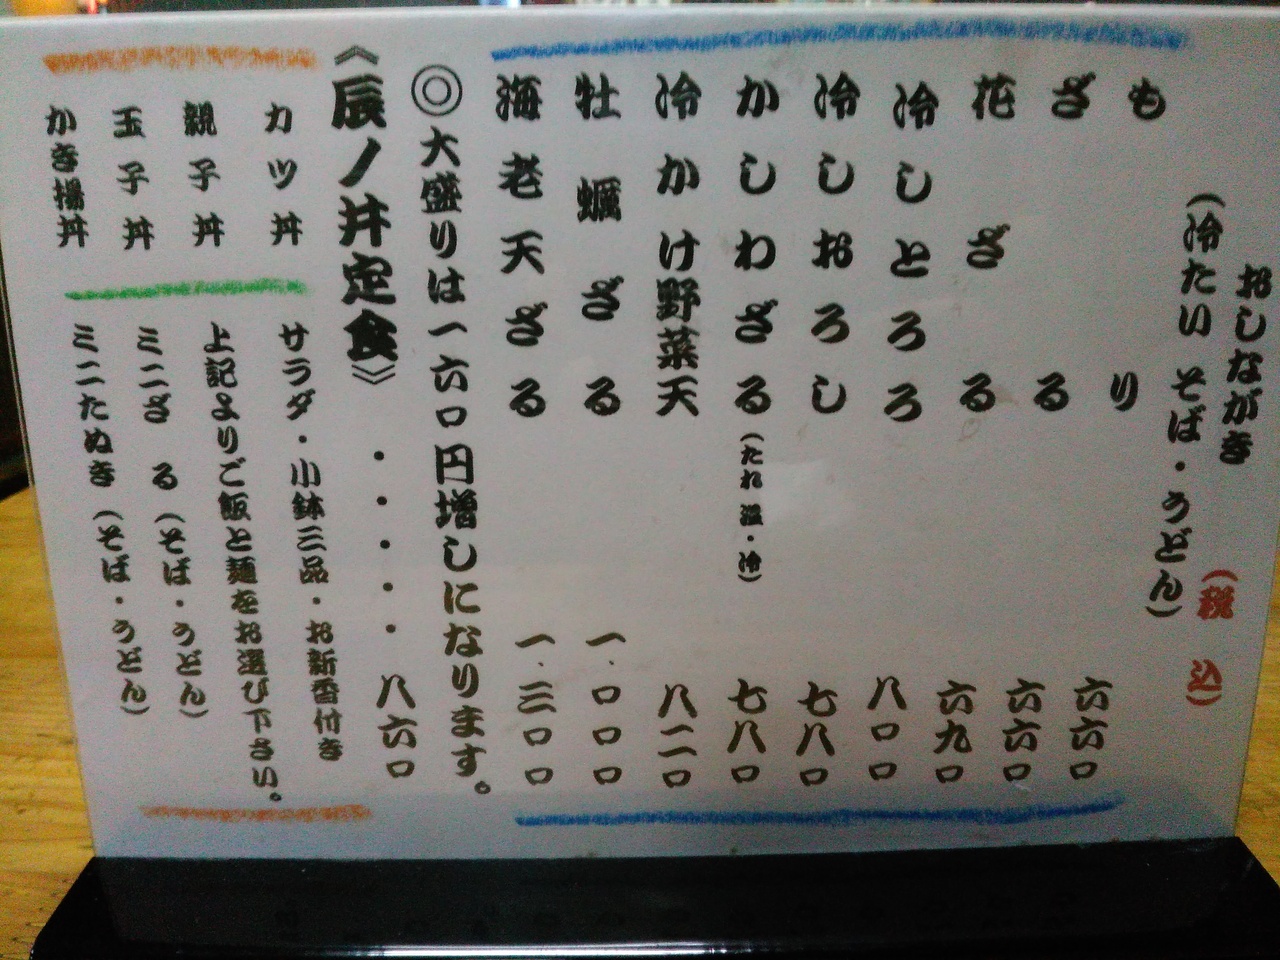 おしながき （税込）
（冷たい そば・うどん）
もり 六六〇
ざる 六六〇
花ざる 六九〇
冷しとろろ 八〇〇
冷しおろし 七八〇
かしわざる（たれ 温・冷） 七八〇
冷かけ野菜天 八二〇
牡蠣ざる 一.〇〇〇
海老天ざる 一.三〇〇
◎大盛りは一六〇円増しになります。
《辰ノ井定食》・・・・・八六〇
カツ丼
親子丼
玉子丼
かき揚丼
サラダ・小鉢三品・お新香付き
上記よりご飯と麺をお選び下さい。
ミニざる（そば・うどん）
ミニたぬき（そば・うどん）